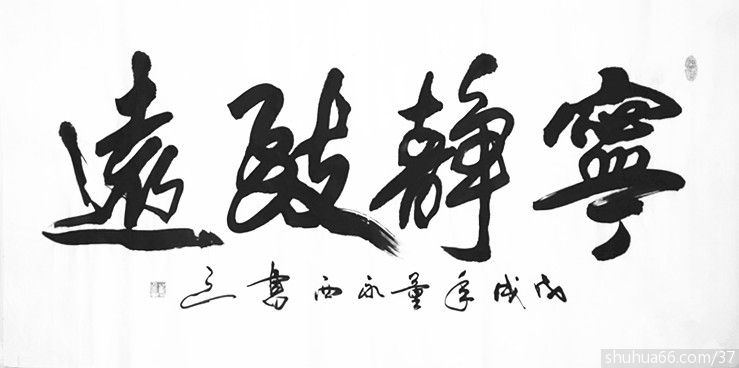 寧靜致遠
戌年董永西書
shuhua66.com/37